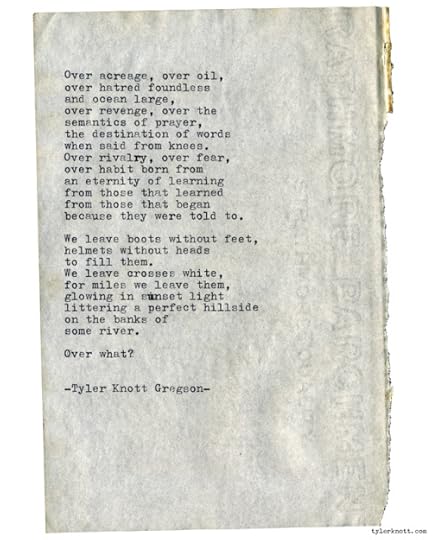 Over acreage, over oil,
over hatred foundless
and ocean large,
over revenge, over the
semantics of prayer,
the destination of words
when said from knees.
Over rivalry, over fear,
over habit born from
an eternity of learning
from those that learned
from those that began
because they were told to.
We leave boots without feet,
helmets without heads
to fill them.
We leave crosses white,
for miles we leave them,
glowing in sunset light
littering a perfect hillside
on the banks of
some river.
Over what?
-Tyler Knott Gregson-
tylerknott.com